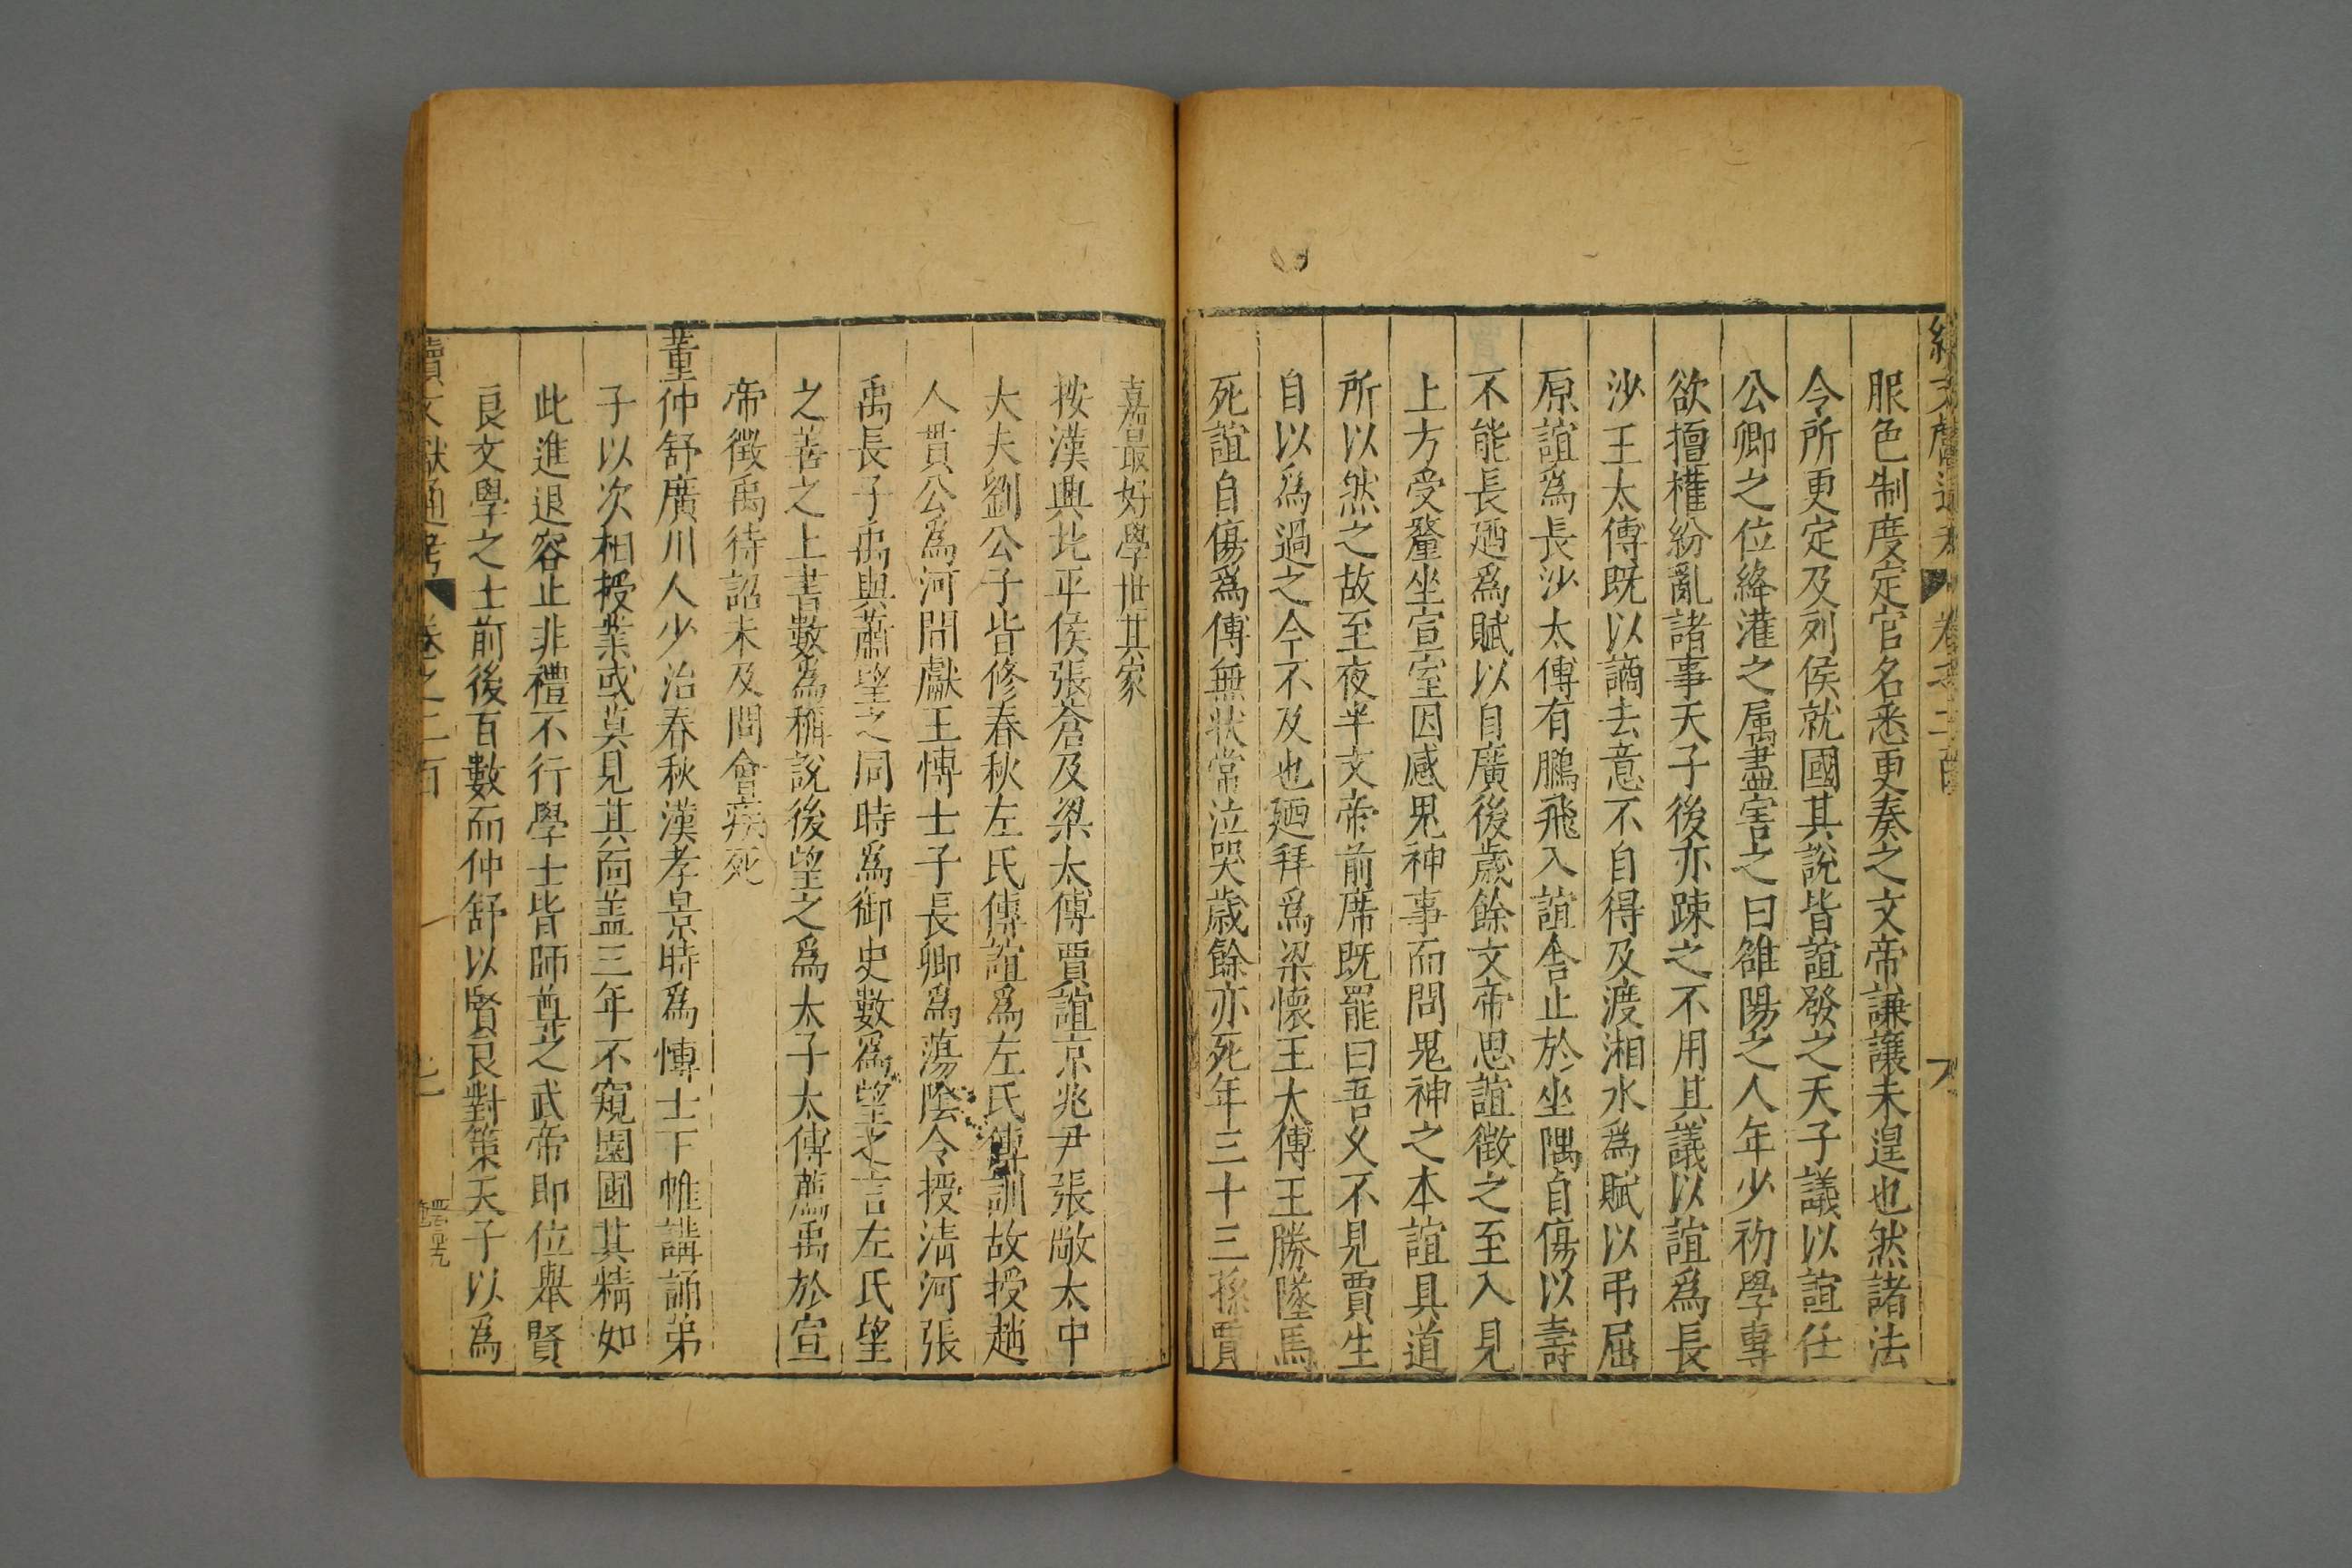 服色制度定官名悉更奏之文帝謙讓未遑也然諸法
令所更定及列侯就國其說皆誼發之天子議以誼任
公卿之位絳灌之属盡害之曰雒陽之人年少初學專
欲擅權紛亂諸事天子後亦踈之不用其議以誼爲長
沙王太傅既以謫去意不自得及渡湘水爲賦以弔屈
原誼爲長沙太傅有鵩飛入誼舎止於坐隅自傷以壽
不能長廼爲賦以自廣後歲餘文帝思誼徴之至入見
上方受釐坐宣室因感鬼神事而問鬼神之本誼具道
所以然之故至夜半文帝前席既罷曰吾乆不見賈生
自以爲過之今不及也廼拜爲梁懷王太傅王勝墜馬
死誼自傷爲傅無狀常泣哭歲餘亦死年三十三孫賈
嘉最好學世其家
按漢興北平侯張蒼及梁太傅賈誼京兆尹張敞太中
大夫劉公子皆修春秋左氏傳誼爲左氏傳訓故授趙
人貫公爲河間獻王博士子長卿爲蕩陰令授清河張
禹長子禹與蕭望之同時爲御史數爲望之言左氏望
之善之上書數爲稱說後望之爲太子太傅薦禹於宣
帝徴禹待詔未及問會疾死
董仲舒廣川人少治春秋漢孝景時爲博士下帷講誦弟
子以次相授業或莫見其面盖三年不窺園圃其精如
此進退容止非禮不行學士皆師尊之武帝即位舉賢
良文學之士前後百數而仲舒以賢良對策天子以爲
續文獻通考 卷之二百